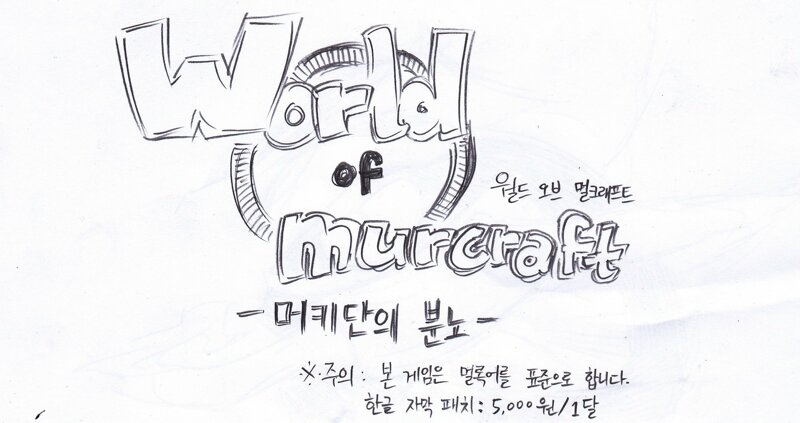 World
of
월드 오브 멀크래프트
murcraft
- 머키단의 분노 -
※주의 : 본 게임은 멀록어를 표준으로 합니다.
한글 자막 패치 : 5,000원/1달